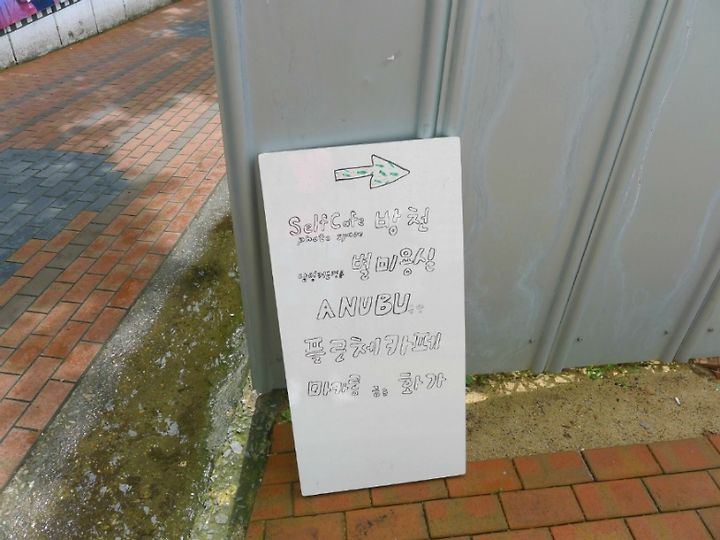 Self Cafe 방천
photo space
별미용실
ANUBU
플근체카페
마카롱 화가